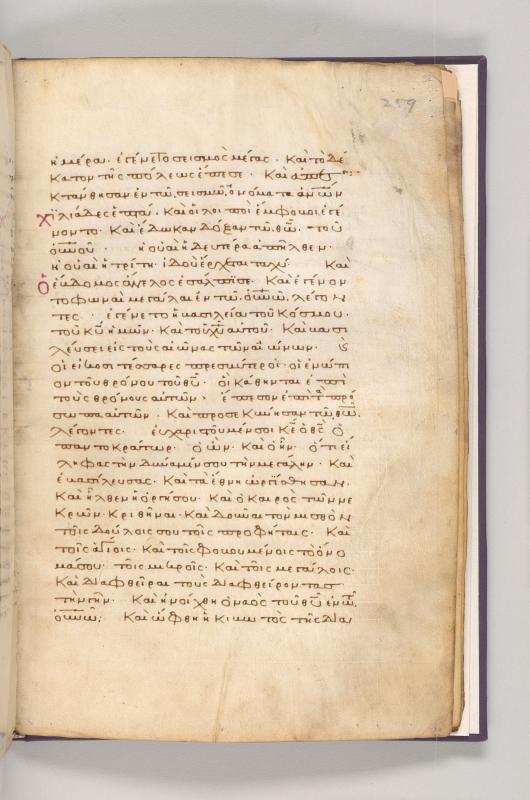 259
ἡμέρα· ἐγένετο σεισμὸς μέγας· Καὶ τὸ δέ
κατον τῆς πόλεως ἔπεσε· Καὶ ἀπε
κτάνθησαν ἐν τῶ σεισμῶ, ὀνόματα ἀν̅ω̅ν
χιλιάδες ἑπτά· Καὶ οἱ λοιποὶ ἔμφοβοι ἐγέ
νοντο· Καὶ ἔδωκαν δόξαν τῶ θ̅ω̅· τοῦ
ο̅υ̅ν̅ο̅υ̅· ἡ οὐαὶ ἡ δευτέρα ἀπῆλθεν·
ἡ οὐαὶ ἡ τρίτη· ἰδοὺ ἔρχεται ταχύ· Καὶ
ὁ ἕβδομος ἄγγελος ἐσάλπισε· Καὶ ἐγένον
το φωναὶ μεγάλαι ἐν τῶ ο̅υ̅ν̅ω̅, λέγον
τες· ἐγένετο ἡ βασιλεία τοῦ κόσμου·
τοῦ κ̅υ̅ ἡμῶν· Καὶ τοῦ χ̅υ̅ αὐτοῦ· Καὶ βασι
λεύσει εἰς τοὺς αἰῶνας τῶν αἰώνων·
οἱ εἴκοσι τέσσαρες πρεσβύτεροι· οἱ ἐνώπι
ον τοῦ θρόνου τοῦ θ̅υ̅· οἱ κάθηνται ἐπὶ
τοὺς θρόνους αὐτῶν· ἔπεσον ἐπὶ τὰ πρό
σωπα αὐτῶν· Καὶ προσεκύνησαν τῶ θ̅ω̅,
λέγοντες· εὐχαριστοῦμέν σοι κ̅ε̅ ὁ θ̅ς̅ ὁ
παντοκράτωρ· ὁ ὢν· Καὶ ὁ ἦν· ὅτι εἴ
ληφας τὴν δύναμίν σου τὴν μεγάλην· Καὶ
ἐβασίλευσας· Καὶ τὰ ἔθνη ὠργίσθησαν·
Καὶ ἦλθεν ἡ ὀργή σου· Καὶ ὁ καιρὸς τῶν νε
κρῶν· κριθῆναι· Καὶ δοῦναι τὸν μισθὸν
τοῖς δούλοις σου τοῖς προφήταις· Καὶ
τοῖς ἁγίοις· Καὶ τοῖς φοβουμένοις τὸ ὄνο
μά σου· τοῖς μικροῖς· Καὶ τοῖς μεγάλοις·
Καὶ διαφθεῖραι τοὺς διαφθείροντας
τὴν γῆν· Καὶ ἠνοίχθη ὁ ναὸς τοῦ θ̅υ̅ ἐν τῶ
ο̅υ̅ν̅ω̅; Καὶ ὤφθη ἡ κιβωτὸς τῆς δια